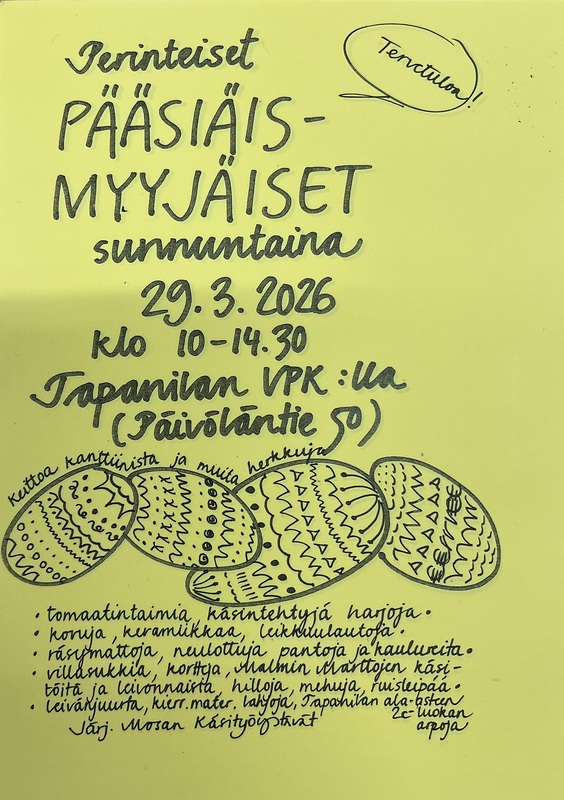 Perinteiset
Tervetuloa!
PÄÄSIÄIS-
MYYJÄISET
sunnuntaina
29.3.2026
klo 10-14.30
Tapanilan VPK:lla
(Päivöläntie 50)
Keittoa kanttiinista ja muita herkkuja
• tomaatintaimia, käsintehtyjä harjoja •
• koruja, keramiikkaa, leikkuulautoja •
• räsymattoja, neulottuja pantoja ja kaulureita •
• villasukkia, kortteja, Malmin Marttojen käsi-
töitä ja leivonnaisia, hilloja, mehuja, ruisleipää •
• leivänjuurta, kierr.mater. lahjoja, Tapanilan ala-asteen
2c-luokan
arpoja
Järj. Mosan Käsityöystävät